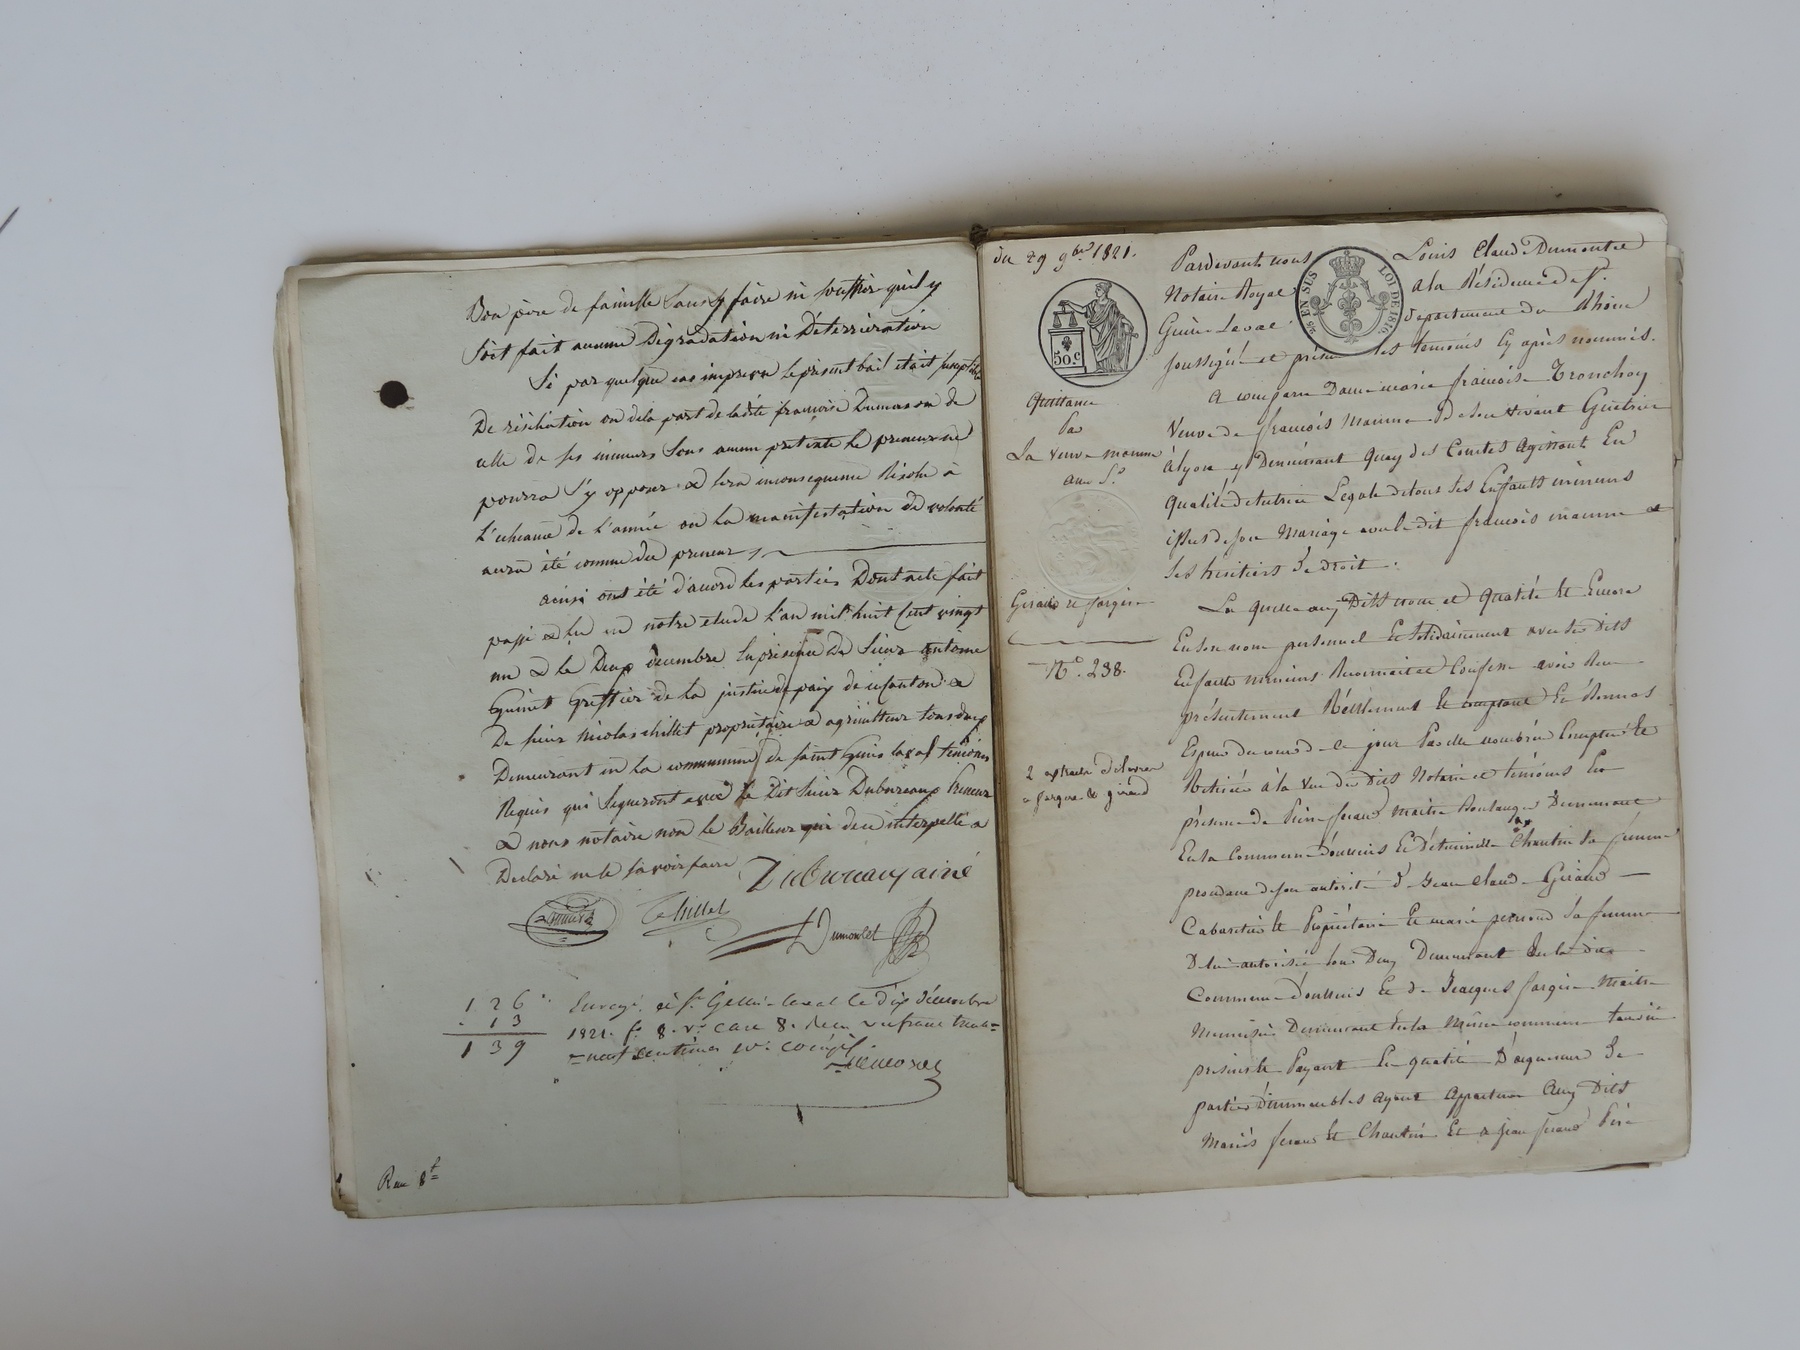 Bon père de famille sans y faire ni souffrir qu'il y
soit fait aucune Dégradation ni Détérioration
Si par quelque cas imprevu le présent bail était susceptible
De résiliation ou de la part de ladite françoise Dumas ou de
celle de ses mineurs sous aucun pretexte le preneur ne
pourra s'y opposer & sera inconsequence Résolu à
L'echeance de l'année ou la manifestation de volonté
aura été connue du preneur
ainsi ont été d'accord les parties Dont acte fait
passé & lu en notre etude L'an mil huit Cent vingt
un & le Deux décembre En présence De Sieur antoine
Guinet Greffier de la justice de paix de ce canton &
De sieur Nicolas chillet propriétaire & agriculteur tous deux
Demeurant en la commune de saint Genis laval temoins
Requis qui signeront avec le Dit sieur Dubureaux Preneur
& nous notaire non le Bailleur qui de ce interpellé a
Declaré ne le savoir faire
Dubureaux ainé
Guinet
Chillet
Dumontet
126
13
139
Enregé à St. Genis-laval le dix décembre
1821. fo. 8. vo. case 8. Reçu un franc trente
neuf centimes
Rec 8
du 29 9bre 1821.
50.C
25 EN SUS
LOI DE 1816.
Quittance
Par
La Veuve mamme
aux S.
Giraud et fargier
No. 238.
2 extraits delivrés
a fargier & giraud
Pardevant nous Louis Claude Dumontet
Notaire Royal à la Résidence de St.
Genis Laval département du Rhône
soussigné et présens les temoins Cy après nommés.
A comparu Dame marie françoise Tronchoy
Veuve de françois Mamme De son Vivant Guêtrier
à Lyon y Demeurant Quay des Comtes Agissant En
Qualité de tutrice Legale de tous ses Enfants mineurs
issus de son Mariage avec le dit françois mamme et
ses heritiers De droit.
La quelle aux Dits nom et Qualité Et Encore
En son nom personnel Et solidairement avec ses dits
Enfants mineurs Reconnait et Confesse avoir Reçu
présentement Réellement Et comptant En Bonnes
Especes du cours de ce jour Par elle nombrées Comptées Et
Retirées à la vue des Dits Notaire et témoins En
présence de Pierre feraud maitre Boulanger Demeurant
En la Commune d'oullins Et d'étiennette Chantin sa femme
procedant de son autorité d'Jean Claude Giraud
Cabaretier Et Propriétaire Et marie perrond sa femme
De lui autorisée tous Deux Demeurant En la dite
Commune d'oullins Et De Jacques fargier Maitre
Menuisier Demeurant En la Même commune tous ici
présents Et Payant En qualité D'acquereurs De
parties D'immeubles ayant Appartenu Aux Dits
Mariés feraud Et Chantin Et à jean feraud Père